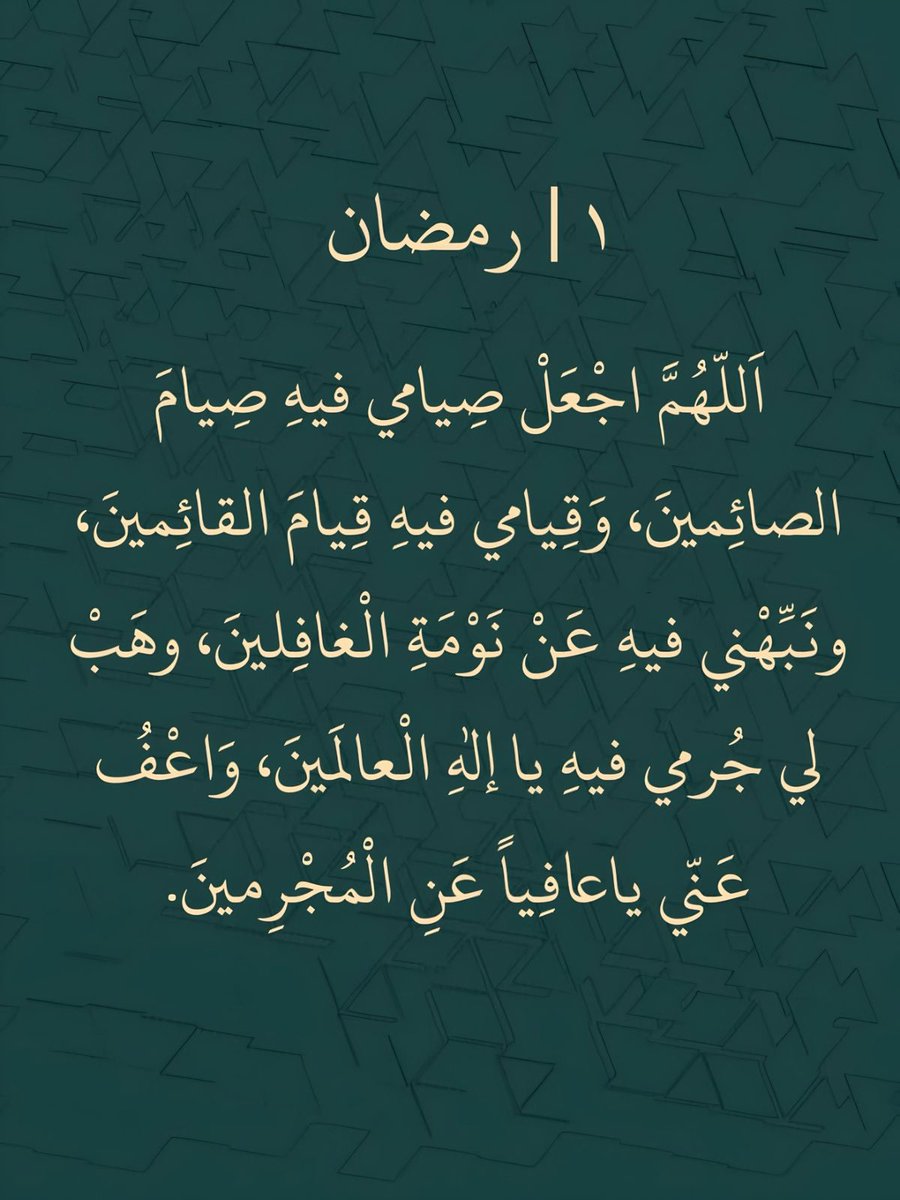 ١ | رمضان
اَللّهُمَّ اجْعَلْ صِيامي فيهِ صِيامَ
الصائِمينَ، وَقِيامي فيهِ قِيامَ القائِمينَ،
ونَبِّهْني فيهِ عَنْ نَوْمَةِ الْغافِلينَ، وهَبْ
لي جُرمي فيهِ يا إلهِٰ الْعالَمينَ، وَاعْفُ
عَنّي ياعافِياً عَنِ الْمُجْرِمينَ.